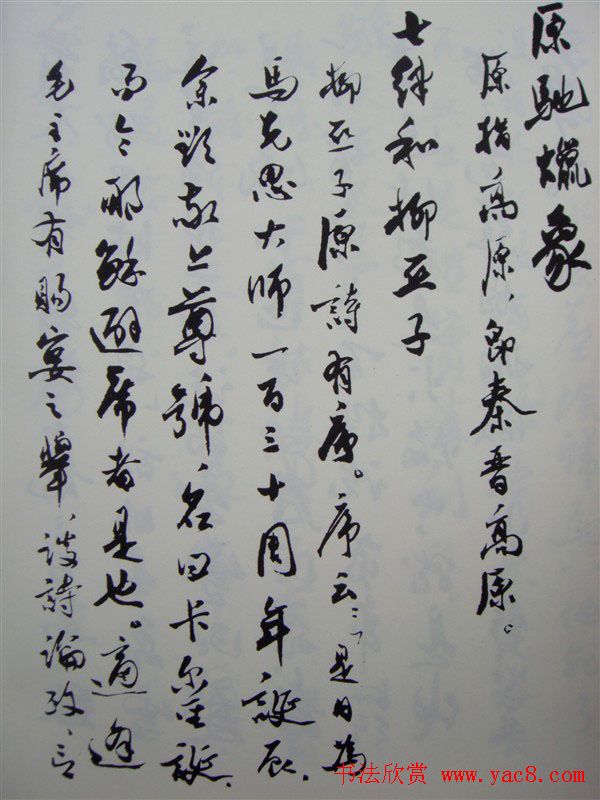 原馳蠟象
原指高原，即秦晋高原。
七律和柳亚子
柳亚子原詩有序。序云：「是日為
馬克思大師一百三十周年誕辰，
余敬上尊號，名曰卡尔聖誕，
而令耶穌避席者是也。適逢
毛主席有賜宴之舉，談詩論政，言
书法欣赏 www.yac8.com